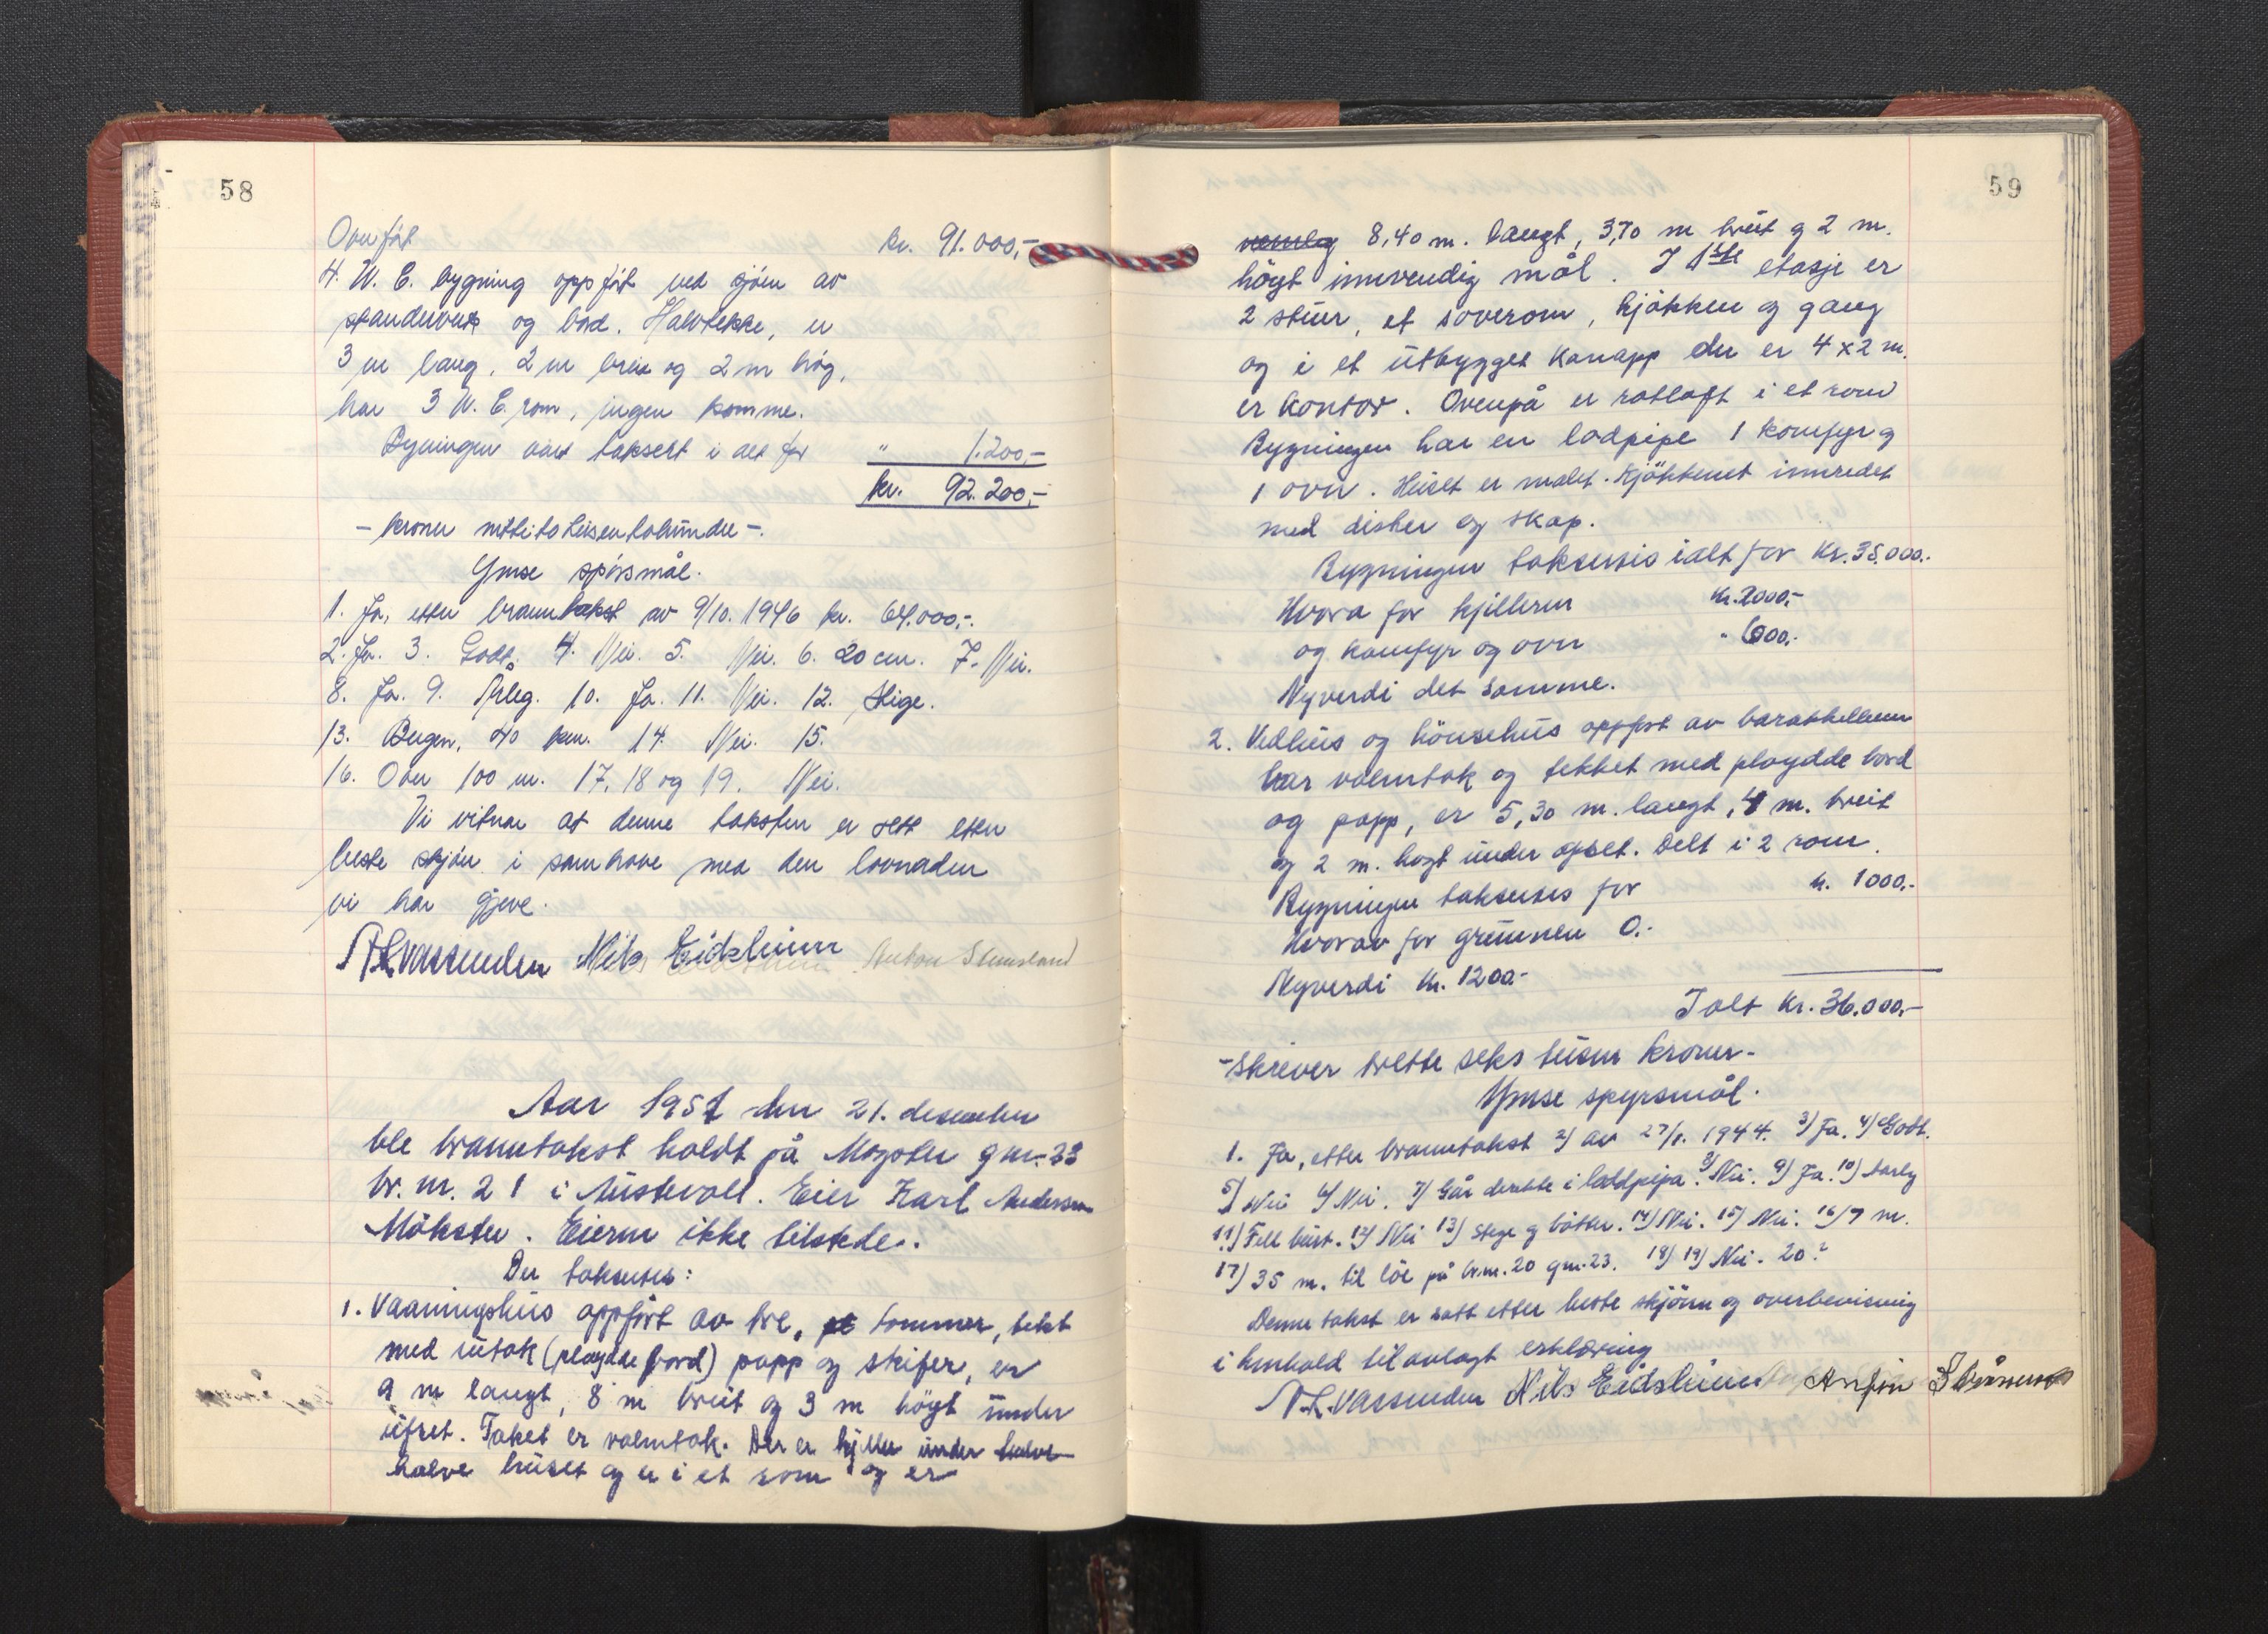 58
Overført kr. 91.000,-
4. W. C. bygning oppført ved sjøen av
standerverk og bord. Halvtekke, er
3 m lang, 2 m brei og 2 m høg,
har 3 W. C. rom, ingen komme.
Bygningen vart taksert i alt for " 1.200,-
kr. 92.200,-
- kroner nittitotusentohundre -.
Ymse spörsmål.
1. Ja, etter branntakst av 9/10. 1946 kr. 64.000,-.
2. Ja. 3. Godt. 4. Nei. 5. Nei. 6. 20 cm. 7. Nei.
8. Ja. 9. Årleg. 10. Ja. 11. Nei. 12. Stige.
13. Bergen, 40 km. 14. Nei. 15.
16. Over 100 m. 17, 18 og 19. Nei.
Vi vitnar at denne taksten er sett etter
beste skjøn i samhøve med den lovnaden
vi har gjeve.
N. L. Vassenden Nils Eidsheim Anton Stensland
Aar 1951 den 21. desember
ble branntakst holdt på Møgster g nr. 23
br. nr. 21 i Austevoll. Eier Karl Andersen
Mökster. Eieren ikke tilstede.
Der takseres:
1. Vaaningshus oppført av tre, tømmer, tekt
med sutak (pløydde bord) papp og skifer, er
9 m langt, 8 m breit og 3 m högt under
üfset. Taket er valmtak. Der er kjeller under halve
halve huset og er i et rom og er
59
nemleg 8,40 m. langt, 3,70 m breit og 2 m.
högt innvendig mål. I 1ste etasje er
2 stuer, et soverom, kjökken og gang
og i et utbygget kanapp der er 4 x 2 m.
er kontor. Ovenpå er rotloft i et rom
Bygningen har en lodpipe 1 komfyr og
1 ovn. Huset er malet. Kjökkenet innredet
med disker og skap.
Bygningen takseres ialt for kr. 35.000.-
Hvorav for kjelleren kr. 2000.-
og komfyr og ovn " 600.-
Nyverdi det samme.
2. Vedhus og hönsehus oppført av barakkellem
har valmtak og tekket med pløydde bord
og papp, er 5,30 m. langt, 4 m. breit
og 2 m. høgt under øpset. Delt i 2 rom.
Bygningen takseres for kr. 1000.-
Hvorav for grunnen 0.-
Nyverdi kr. 1200.-
Ialt kr. 36.000.-
- Skriver trette seks tusen kroner -
Ymse spyrsmål.
1. Ja, etter branntakst 2) av 27/8. 1944. 3) Ja. 4) Godt.
5) Nei 6) Nei. 7) Går derekte i loddpipa. 8) Nei. 9) Ja. 10) årleg
11) Fell bust. 12) Nei 13) Stege og bøtter. 14) Nei. 15) Nei. 16) 7 m.
17) 35 m. til löe på br.nr. 20 g nr. 23. 18) 19) Nei. 20?
Denne takst er satt etter beste skjönn og overbevisning
i henhold til avlagt erklæring
N. L. Vassenden Nils Eidsheim Anfin